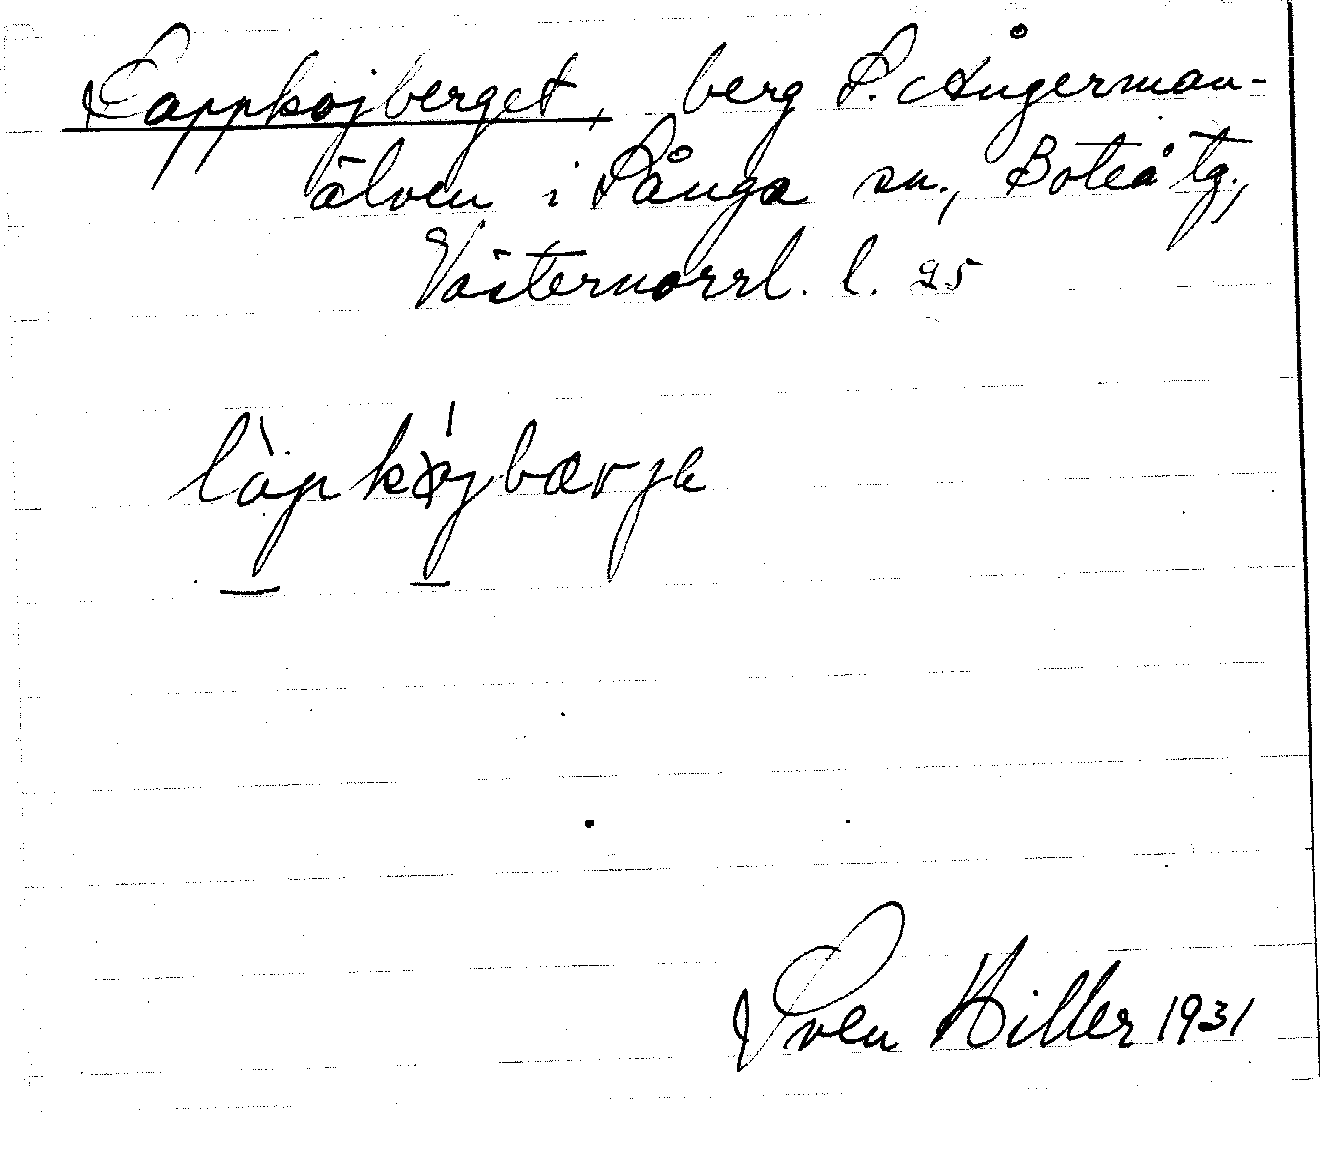 Lappkojberget, berg S. Ångerman-
älven i Sånga sn., Boteå tg.,
Västernorrl. l. 25
làpkǿjbærjɐ
Sven Hiller 1931